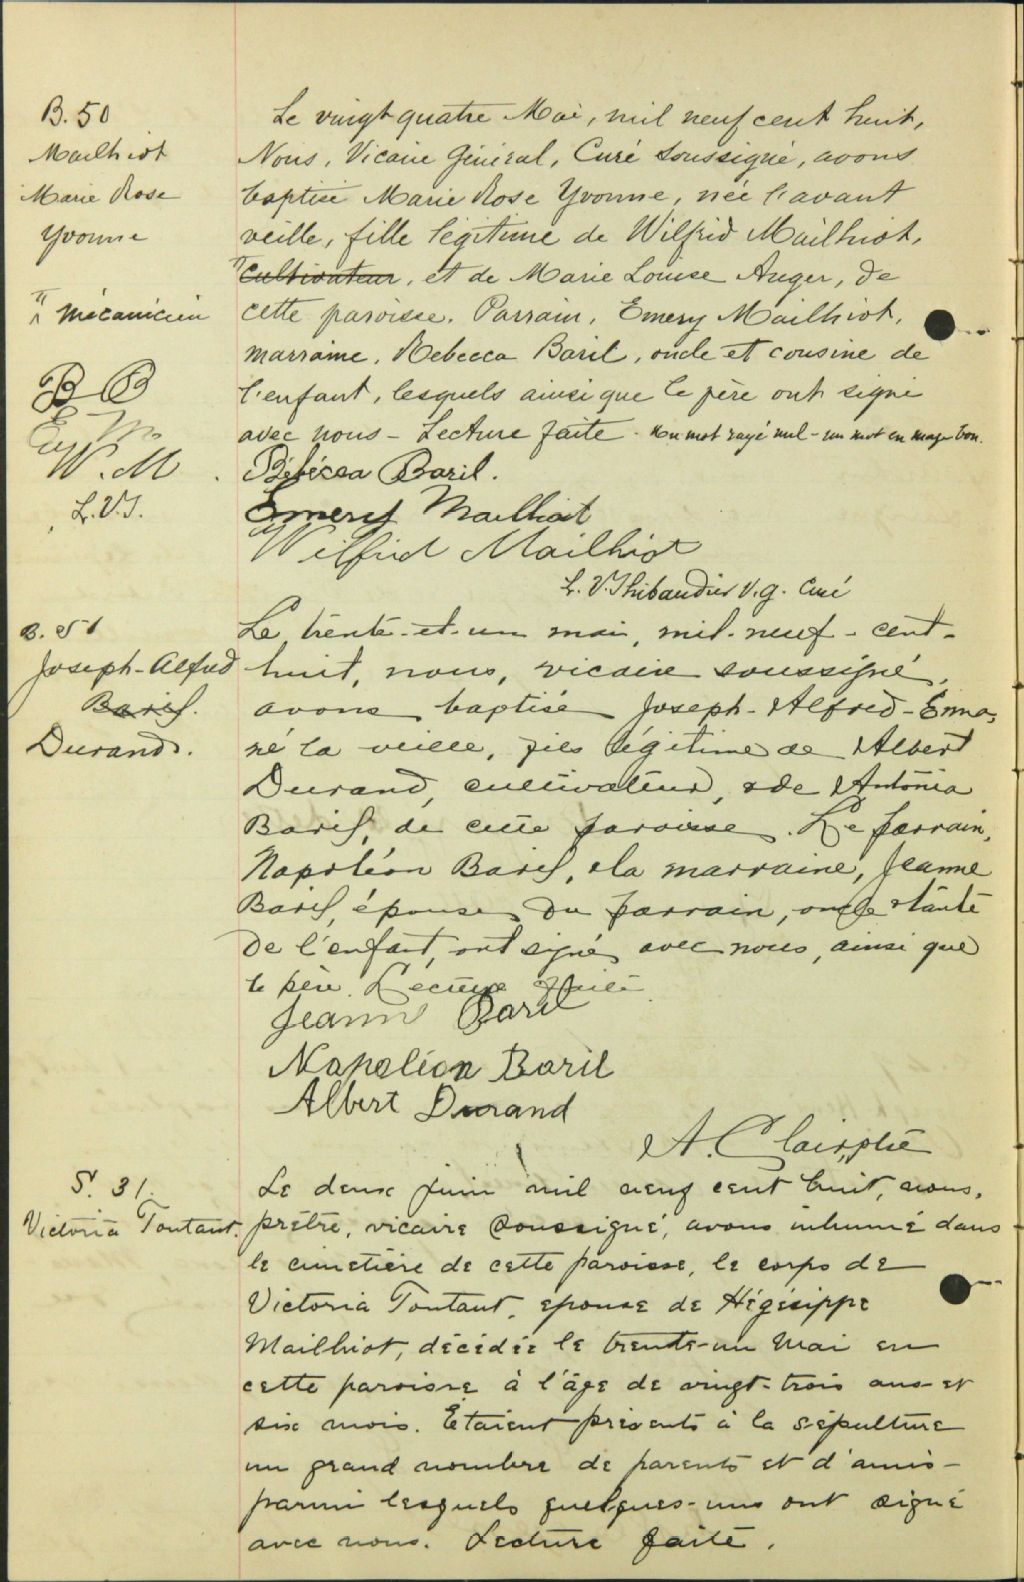 B. 50
Mailhiot
Marie Rose
Yvonne
mécanicien
B B
E. M.
W. M.
L. V. T.
Le vingt quatre Mai, mil neuf cent huit,
Nous, Vicaire Général, Curé soussigné, avons
baptisé Marie Rose Yvonne, née l'avant
veille, fille légitime de Wilfrid Mailhiot,
cultivateur, et de Marie Louise Auger, de
cette paroisse. Parrain, Emery Mailhiot,
marraine, Rebecca Baril, oncle et cousine de
l'enfant, lesquels ainsi que le père ont signé
avec nous - Lecture faite. Un mot rayé nul - un mot en marge bon.
Rébécca Baril.
Emery Mailhiot
Wilfrid Mailhiot
L. V. Thibaudier V. g. Curé
B. 51
Joseph-Alfred
Baril.
Durand.
Le trente-et-un mai, mil-neuf-cent-
huit, nous, vicaire soussigné,
avons baptisé Joseph-Alfred-
né la veille, fils légitime de Albert
Durand, cultivateur, & de Antonia
Baril, de cette paroisse. Le parrain,
Napoléon Baril, & la marraine, Jeanne
Baril, épouse du parrain, oncle & tante
de l'enfant, ont signé avec nous, ainsi que
le père. Lecture faite.
Jeanne Baril
Napoléon Baril
Albert Durand
A. Clair, ptre
S. 31.
Victoria Toutant.
Le deux juin mil neuf cent huit, nous,
prêtre, vicaire soussigné, avons inhumé dans
le cimetière de cette paroisse, le corps de
Victoria Toutant, épouse de Hégésippe
Mailhiot, décédée le trente-un Mai en
cette paroisse à l'âge de vingt-trois ans et
six mois. Etaient présents à la sépulture
un grand nombre de parents et d'amis -
parmi lesquels quelques-uns ont signé
avec nous. Lecture faite.